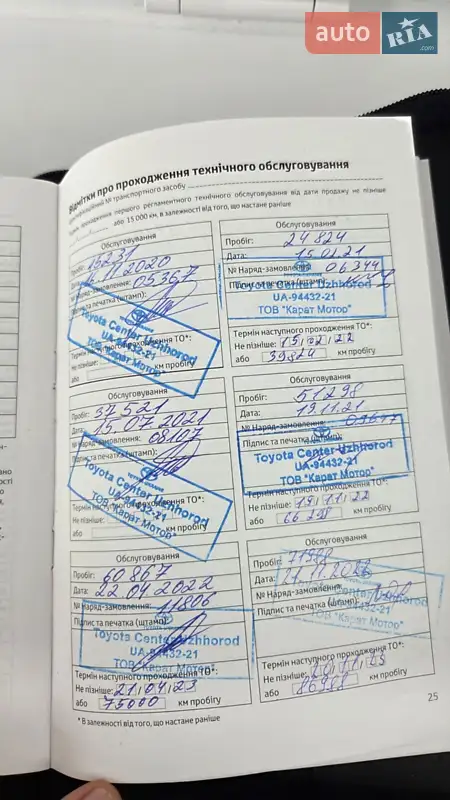 auto RIA .com
Відмітки про проходження технічного обслуговування
Ідентифікаційний № транспортного засобу
Термін проходження першого регламентного технічного обслуговування від дати продажу не пізніше
або 15 000 км, в залежності від того, що настане раніше
Обслуговування
Пробіг: 15231
Дата: 16.11.2020
№ Наряд-замовлення: 05367
Підпис та печатка (штамп):
Toyota Center Uzhhorod
UA-94432-21
ТОВ "Карат Мотор"
Термін наступного проходження ТО*:
Не пізніше:
або км пробігу
Обслуговування
Пробіг: 24824
Дата: 15.02.21
№ Наряд-замовлення: 06344
Підпис та печатка (штамп):
Toyota Center Uzhhorod
UA-94432-21
ТОВ "Карат Мотор"
Термін наступного проходження ТО*:
Не пізніше: 15.02.22
або 39824 км пробігу
Обслуговування
Пробіг: 37521
Дата: 15.07.2021
№ Наряд-замовлення: 08107
Підпис та печатка (штамп):
Toyota Center Uzhhorod
UA-94432-21
ТОВ "Карат Мотор"
Термін наступного проходження ТО*:
Не пізніше:
або км пробігу
Обслуговування
Пробіг: 51298
Дата: 19.11.21
№ Наряд-замовлення:
Підпис та печатка (штамп):
Toyota Center Uzhhorod
UA-94432-21
ТОВ "Карат Мотор"
Термін наступного проходження ТО*:
Не пізніше: 19.11.22
або 66298 км пробігу
Обслуговування
Пробіг: 60867
Дата: 22.04.2022
№ Наряд-замовлення: 11806
Підпис та печатка (штамп):
Toyota Center Uzhhorod
UA-94432-21
ТОВ "Карат Мотор"
Термін наступного проходження ТО*:
Не пізніше: 21.04.23
або 75000 км пробігу
Обслуговування
Пробіг:
Дата:
№ Наряд-замовлення:
Підпис та печатка (штамп):
Toyota Center Uzhhorod
UA-94432-21
ТОВ "Карат Мотор"
Термін наступного проходження ТО*:
Не пізніше:
або км пробігу
* В залежності від того, що настане раніше
25